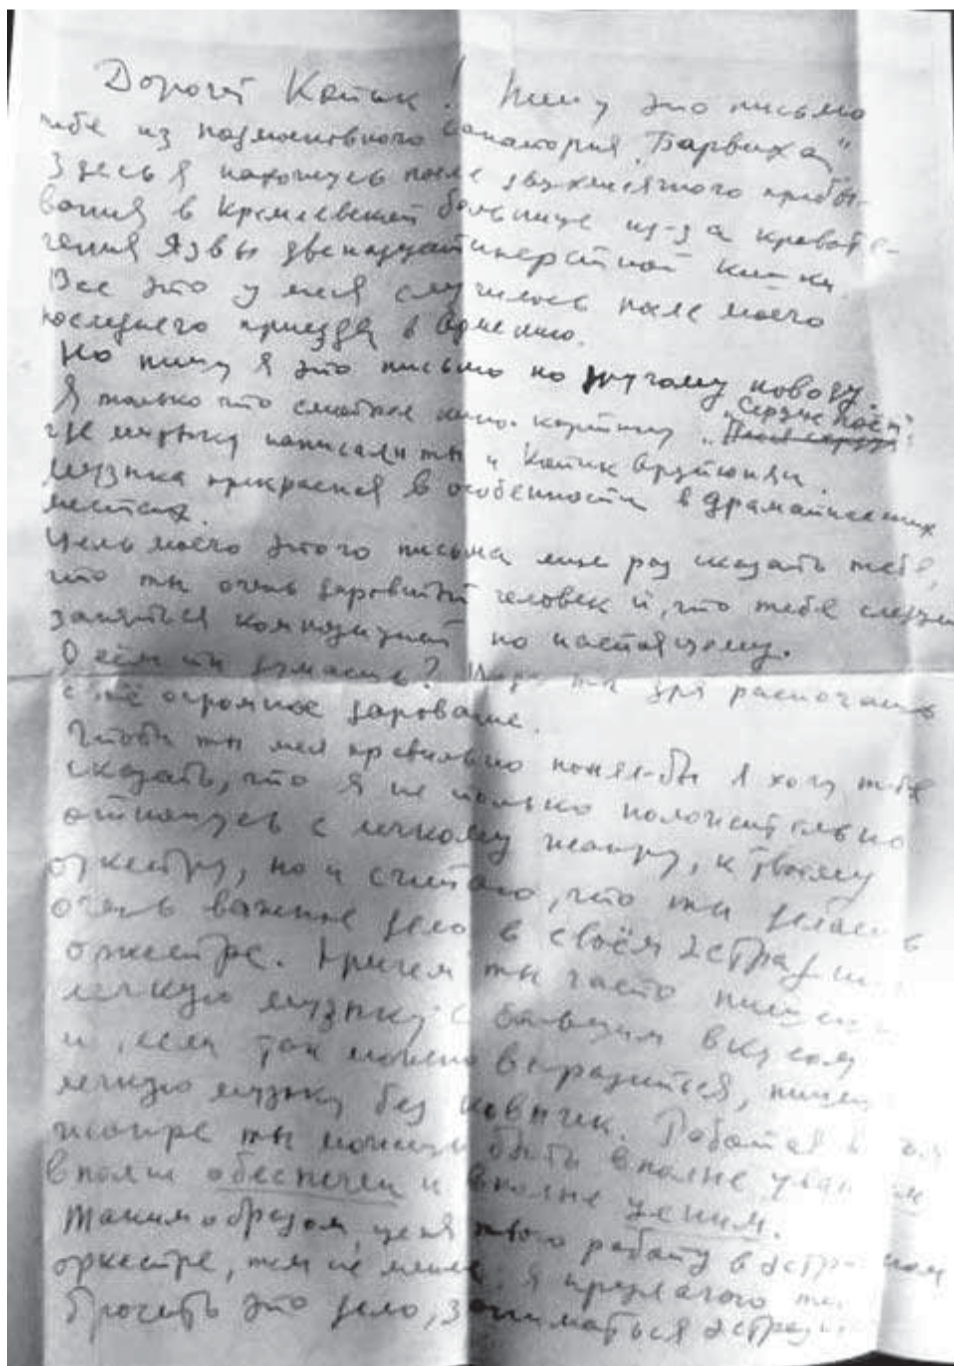 Дорогой Котик! Пишу это письмо
тебе из подмосковного санатория „Барвиха"
Здесь я нахожусь после двухмесячного пребы-
вания в Кремлевской больнице из-за кровоте-
чения язвы двенадцатиперстной кишки.
Все это у меня случилось после моего
последнего приезда в Армению.
Но пишу я это письмо по другому поводу.
Я только что смотрел кино-картину „Сердце поёт",
где музыку написали ты и Котик Арутюнян.
Музыка прекрасная в особенности в драматических
местах.
Цель моего этого письма еще раз сказать тебе,
что ты очень даровитый человек и, что тебе следует
заняться композицией по настоящему.
О чём ты думаешь? ты зря растрачаешь
своё огромное дарование.
Чтобы ты меня правильно понял-бы я хочу тебе
сказать, что я не только положительно
отношусь с легкому жанру, к твоему
оркестру, но и считаю, что ты делаешь
очень важное дело в своём эстрадном
оркестре. Причем ты часто пишешь
легкую музыку с большим вкусом
и, если так можно выразиться, пишешь
легкую музыку без кавычек. Работая в
жанре ты можешь быть вполне
вполне обеспечен и вполне ценим.
Таким образом, ценя твою работу в эстрадном
оркестре, тем не менее, я предлагаю
бросить это дело, заниматься